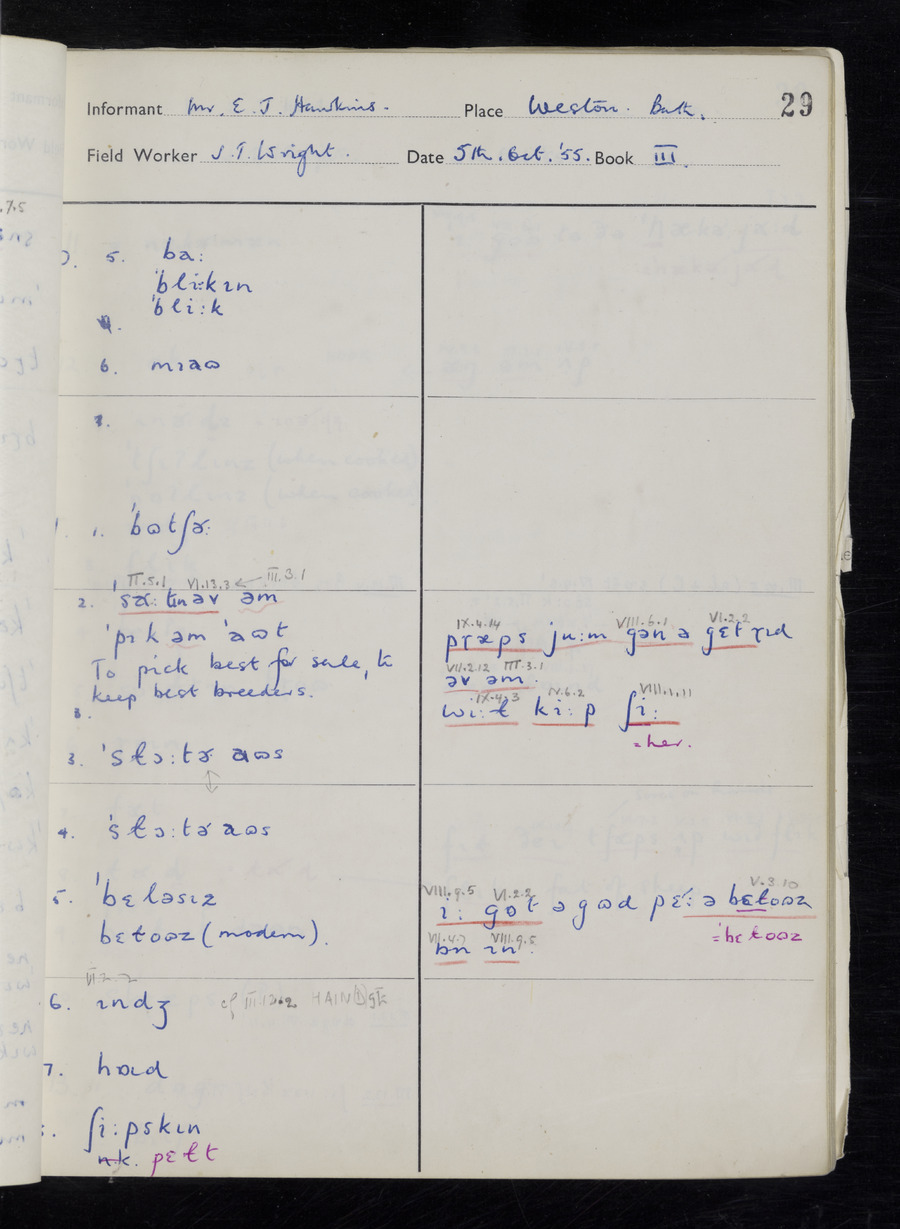 Informant Mr. E. J. Hawkins. Place Weston. Bath. 29
Field Worker J.T. Wright. Date 5th. Oct. '55. Book III.
5. ba:
'bli:kɪn
'bli:k
6. mɪaʊ
1. 'bʊtʃɚ:
II.5.1 VI.13.3 ← III.3.1
2. əm
'pɪk əm 'aʊt
To pick best for sale, to
keep best breeders.
IX.4.14 VIII.6.1 VI.2.2
ju:m gən ə
VII.2.12 III.3.1
əv əm.
IX.4.3 IV.6.2 VIII.1.11
wi:ɫ ki:p ʃi:
= her.
3. 'sɫɔ:tɚ aʊs
4. 'sɫɔ:tɚ aʊs
VIII.9.5 VI.2.2 V.3.10
5. 'bɛləsɪz
i: gɒt ə gʊd pɛ: ə bɛɫʊəz
bɛɫoəz (modern).
= bɛɫoəz
VII.4.7 VIII.9.5
ɒn ɪn.
VI.2.2
6. ɪndʒ cf III.12.2
7. hɒɪd
ʃi:pskɪn
n.k. pɛɫt